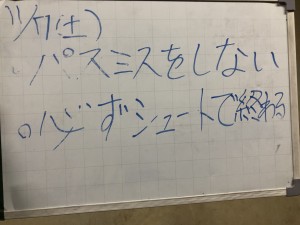 11/17(土)
パスミスをしない
。必ずシュートで終わる